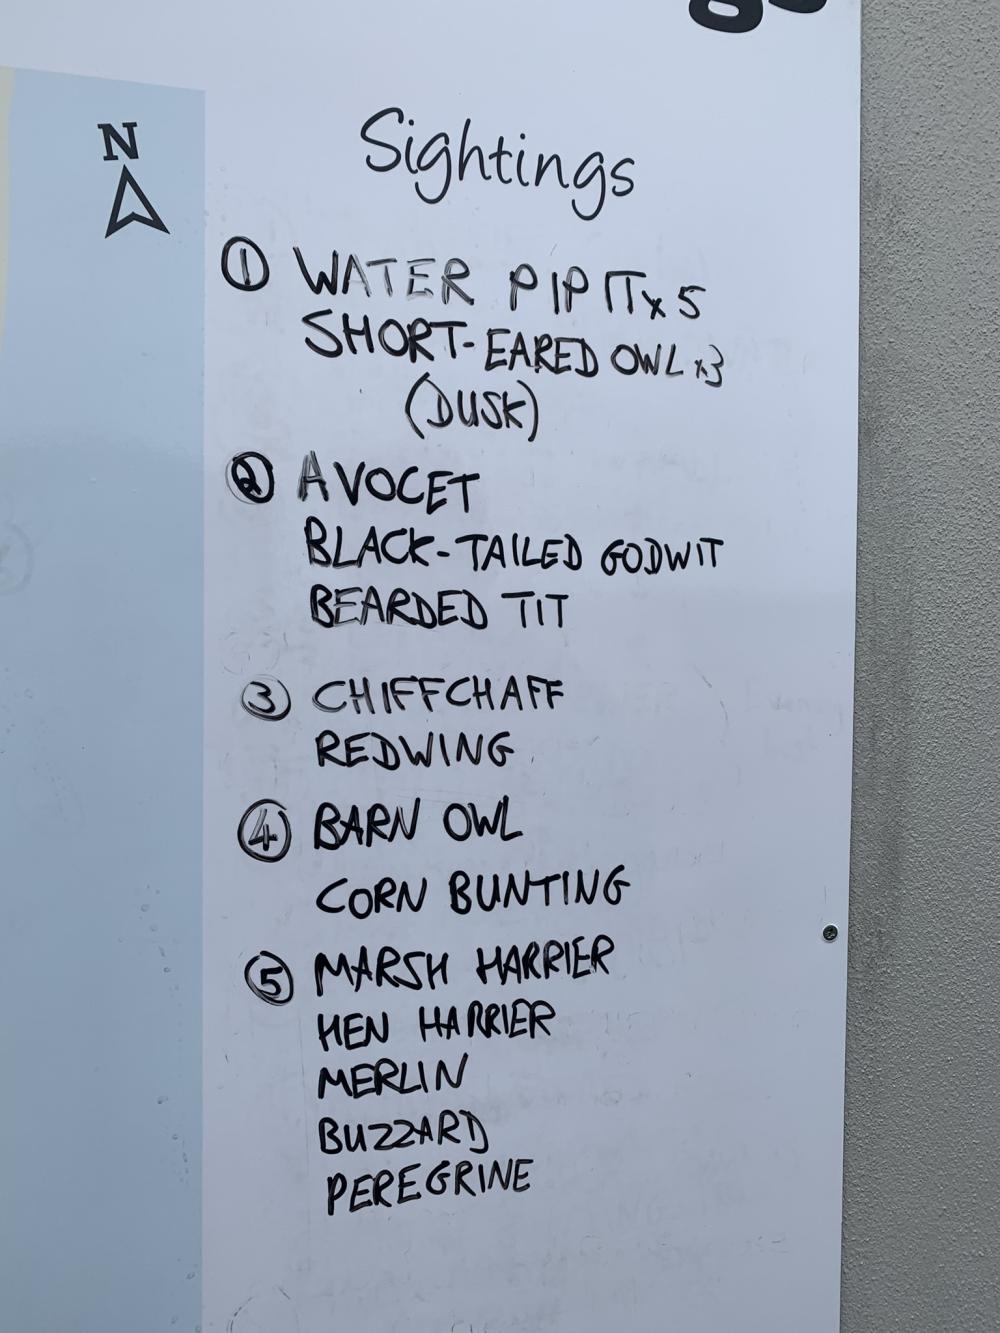 N
Sightings
① WATER PIPIT x 5
SHORT-EARED OWL x3
(DUSK)
② AVOCET
BLACK-TAILED GODWIT
BEARDED TIT
③ CHIFFCHAFF
REDWING
④ BARN OWL
CORN BUNTING
⑤ MARSH HARRIER
HEN HARRIER
MERLIN
BUZZARD
PEREGRINE